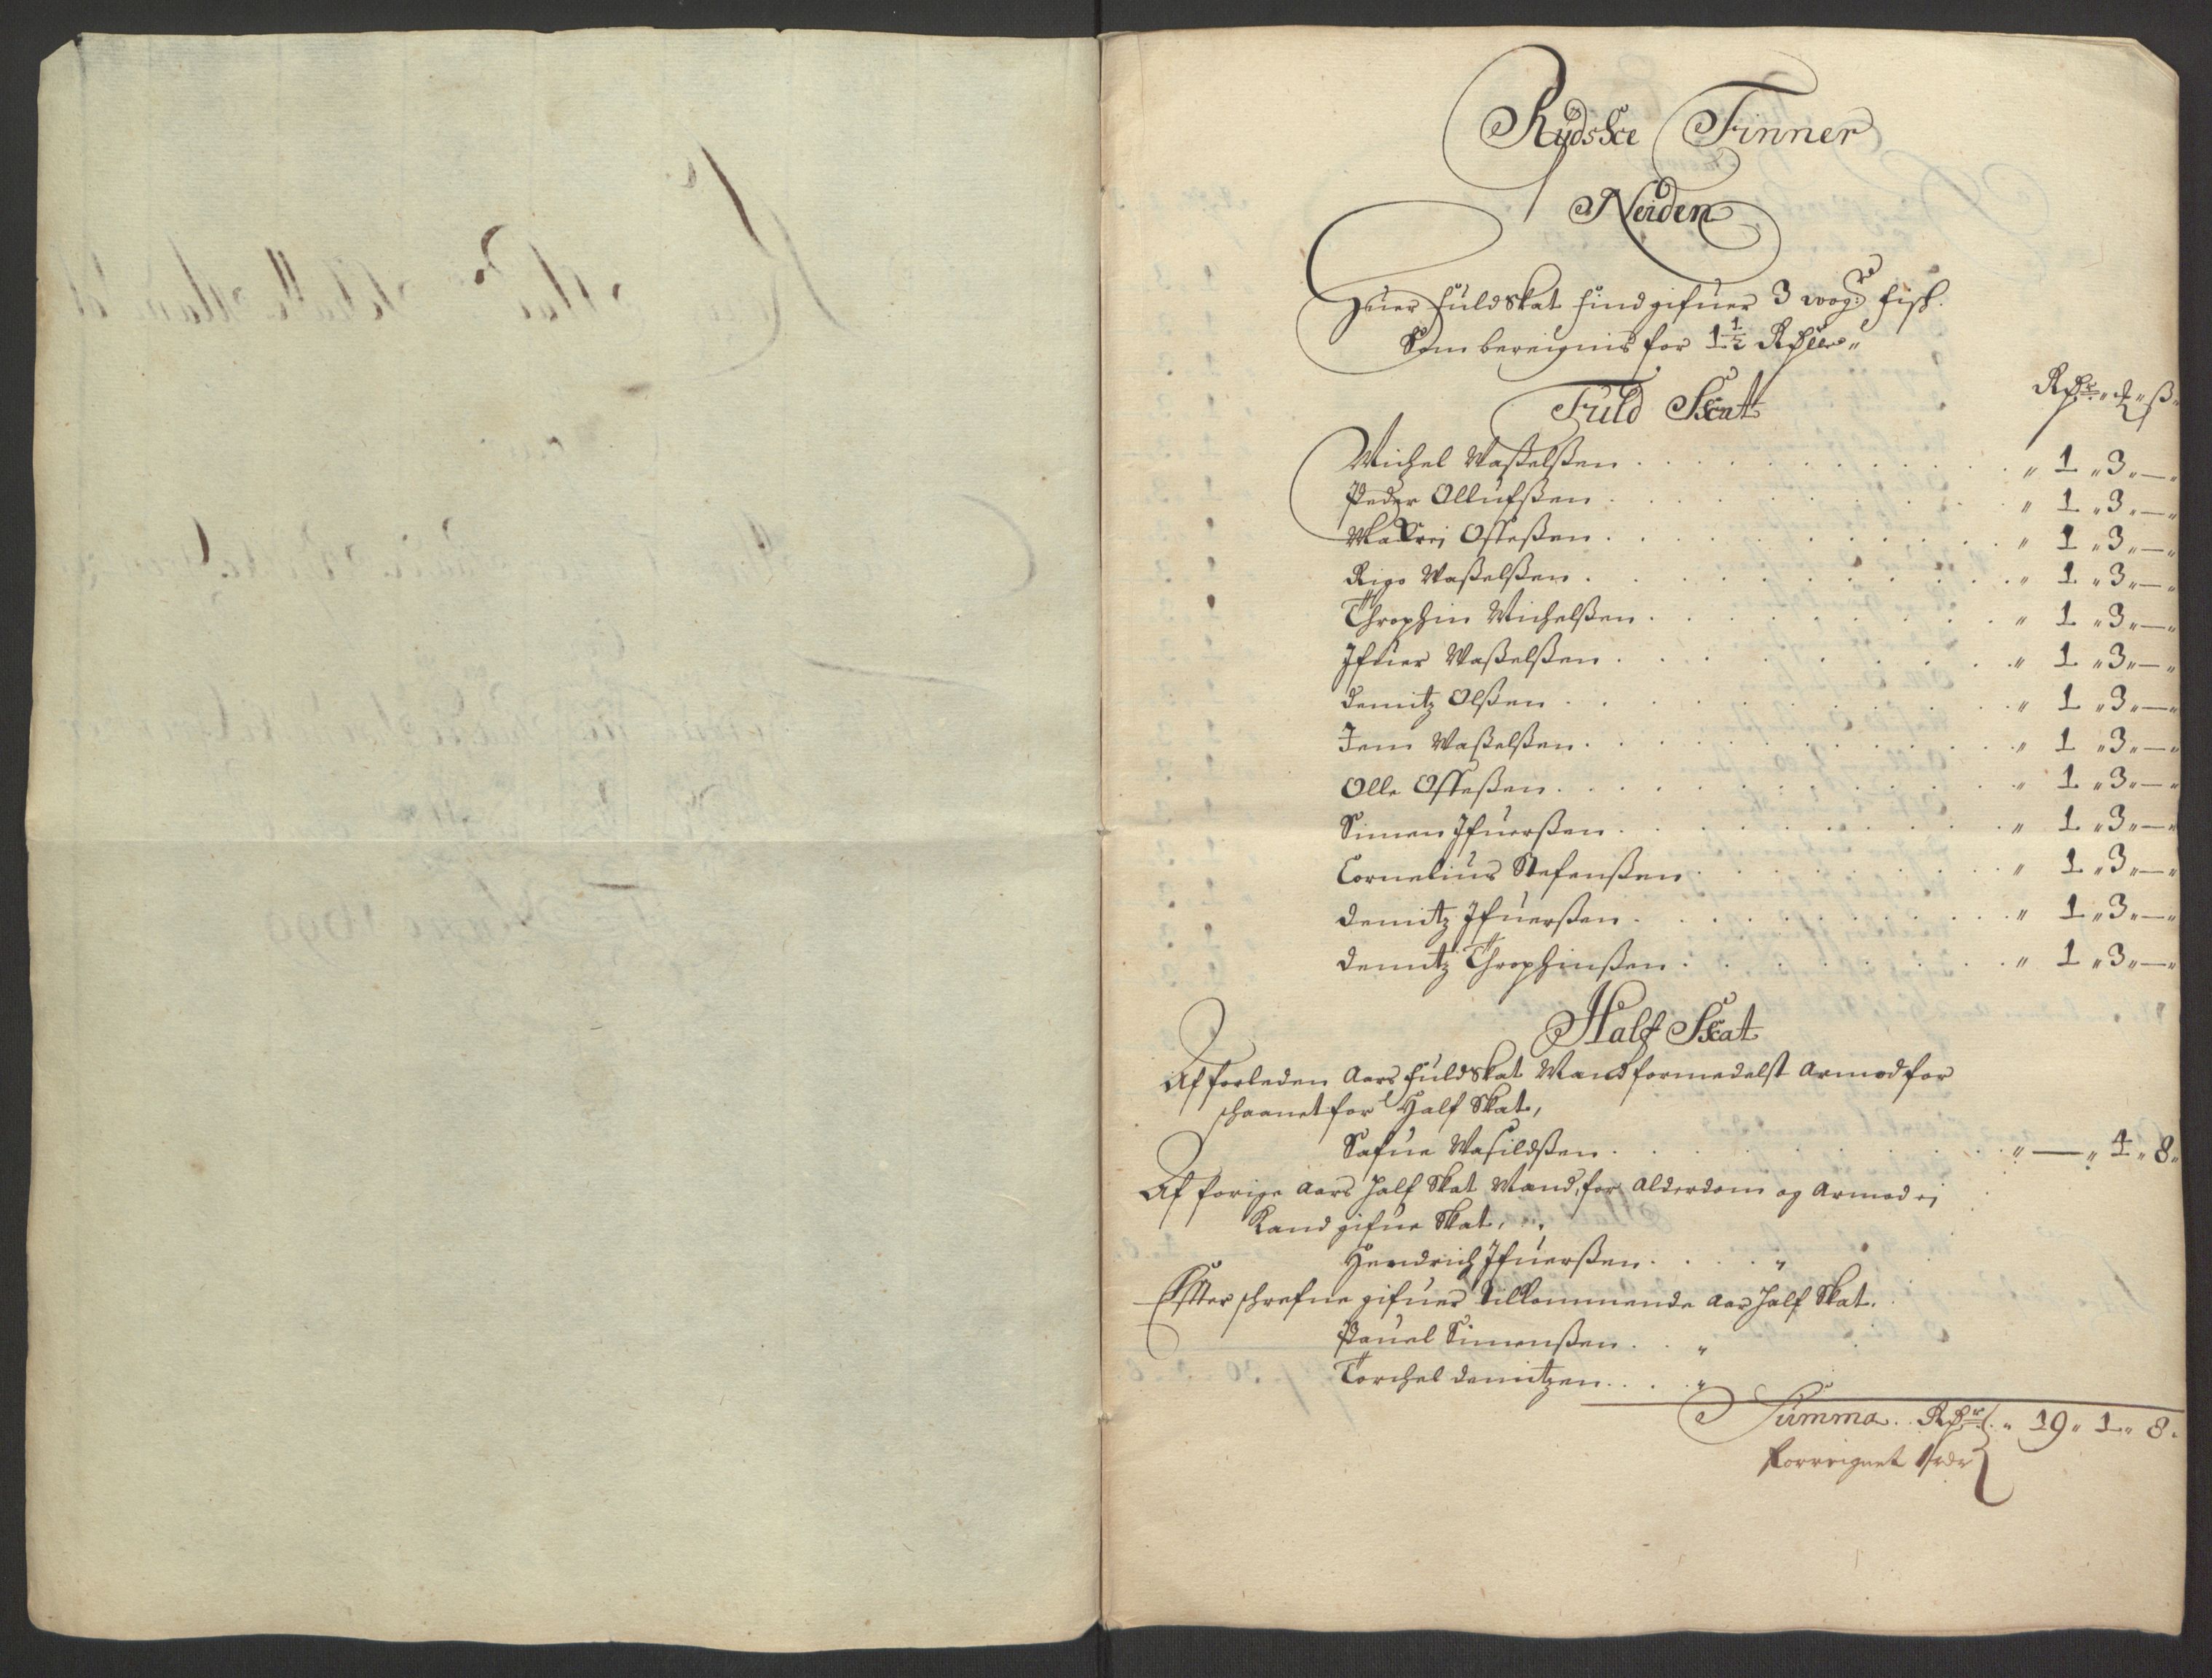 Rydske Finner
Neiden
Huer fuldskat find gifuer 3 wog: fisk.
Som bereignis for 1½ Rdler„
Fuld Skat
Rdr „ ß„
Michel Waselsßen „ 1 „ 3 „ — „
Peder Ollufsßen „ 1 „ 3 „ — „
Makrei Ofseßen „ 1 „ 3 „ — „
Rigo Waßelsßen „ 1 „ 3 „ — „
Throphin Michelsßen „ 1 „ 3 „ — „
Ifuer Waßelsßen „ 1 „ 3 „ — „
Demitz Olsßen „ 1 „ 3 „ — „
Jem Waßelsßen „ 1 „ 3 „ — „
Olle Offeßen „ 1 „ 3 „ — „
Simen Ifuersßen „ 1 „ 3 „ — „
Cornelius Stefensßen „ 1 „ 3 „ — „
Demitz Ifuersßen „ 1 „ 3 „ — „
Demitz Throphinsßen „ 1 „ 3 „ — „
Half Skat
Af forleden Aars fuldskat Mand formedelst Armod for
schaanet for Half Skat,
Safue Wasildsßen „ — „ 4 „ 8 „
Af forige Aars half Skat Mand, for Alderdom og Armod ei
Kand gifue Skat,
Hendrich Ifuersßen „
Effter schrefne gifuer tilkommende Aar half Skat.
Pauel Simensßen „
Torchel Demitzen „
Summa Rdr „ 19 „ 1 „ 8 „
forreignet